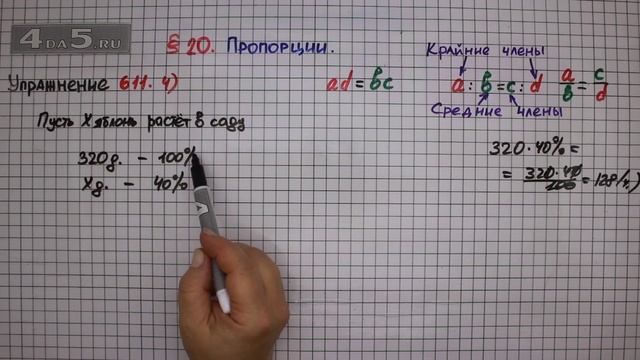 4DA5.RU
§ 20. Пропорции.
Упражнение 611. 4)
ad = bc
Крайние члены
a : b = c : d
a/b = c/d
Средние члены
Пусть X яблонь растёт в саду
320д. – 100%
Xд. – 40%
320 · 40% =
= 320·40/100 = 128